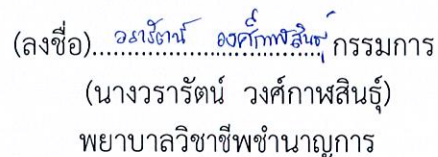 (ลงชื่อ)....วรารัตน์ วงศ์กาฬสินธุ์....กรรมการ
(นางวรารัตน์ วงศ์กาฬสินธุ์)
พยาบาลวิชาชีพชำนาญการ